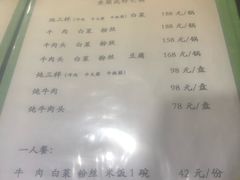 炖三样(牛肉 牛大骨 牛板筋) 白菜 188元/锅
牛肉 白菜 粉丝 188元/锅
牛肉头 白菜 粉丝 158元/锅
牛肉头 白菜 粉丝 豆腐 168元/锅
炖三样 98元/盘
炖牛肉 98元/盘
炖牛肉头 78元/盘
一人餐:
牛肉 白菜 粉丝 米饭1碗 42元/份